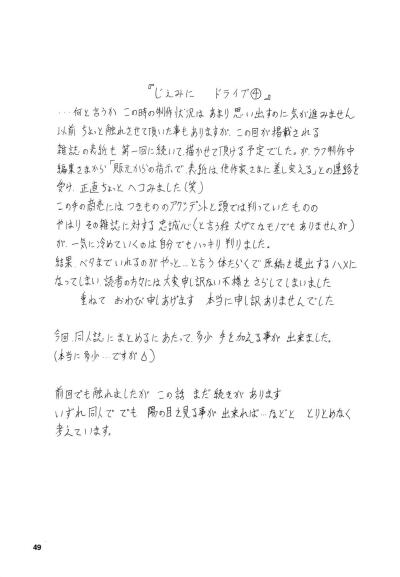 『じぇみに ドライブ④』
…何と言うか この時の制作状況は あまり思い出すのに 気が進みません
以前 ちょっと触れさせて頂いた事もありますが、この回が掲載される
雑誌の表紙も 第一回に続いて、描かせて頂ける予定でした。が、ラフ制作中
編集さまから「販元からの指示で、表紙は、他作家さまに差し変える」との連絡を
受け、正直ちょっと ヘコみました(笑)
この手の商売には つきもののアクシデントと頭では判っていたものの
やはり その雑誌に対する 忠誠心(と言う程 大ゲサなモノでもありませんが)
が、一気に冷めていくのは 自分でもハッキリ 判りました。
結果、ベタまでいれるのがやっと…と言う 体たらくで 原稿を提出するハメに
なってしまい、読者の方々には 大変申し訳ない不様をさらしてしまいました
重ねて おわび申しあげます 本当に申し訳ありませんでした
今回、同人誌にまとめるにあたって、多少 手を加える事が 出来ました。
(本当に多少…ですが
前回でも触れましたが この話 まだ続きが あります
いずれ同人で でも 陽の目を見る事が 出来れば…などと とりとめなく
考えています。
49